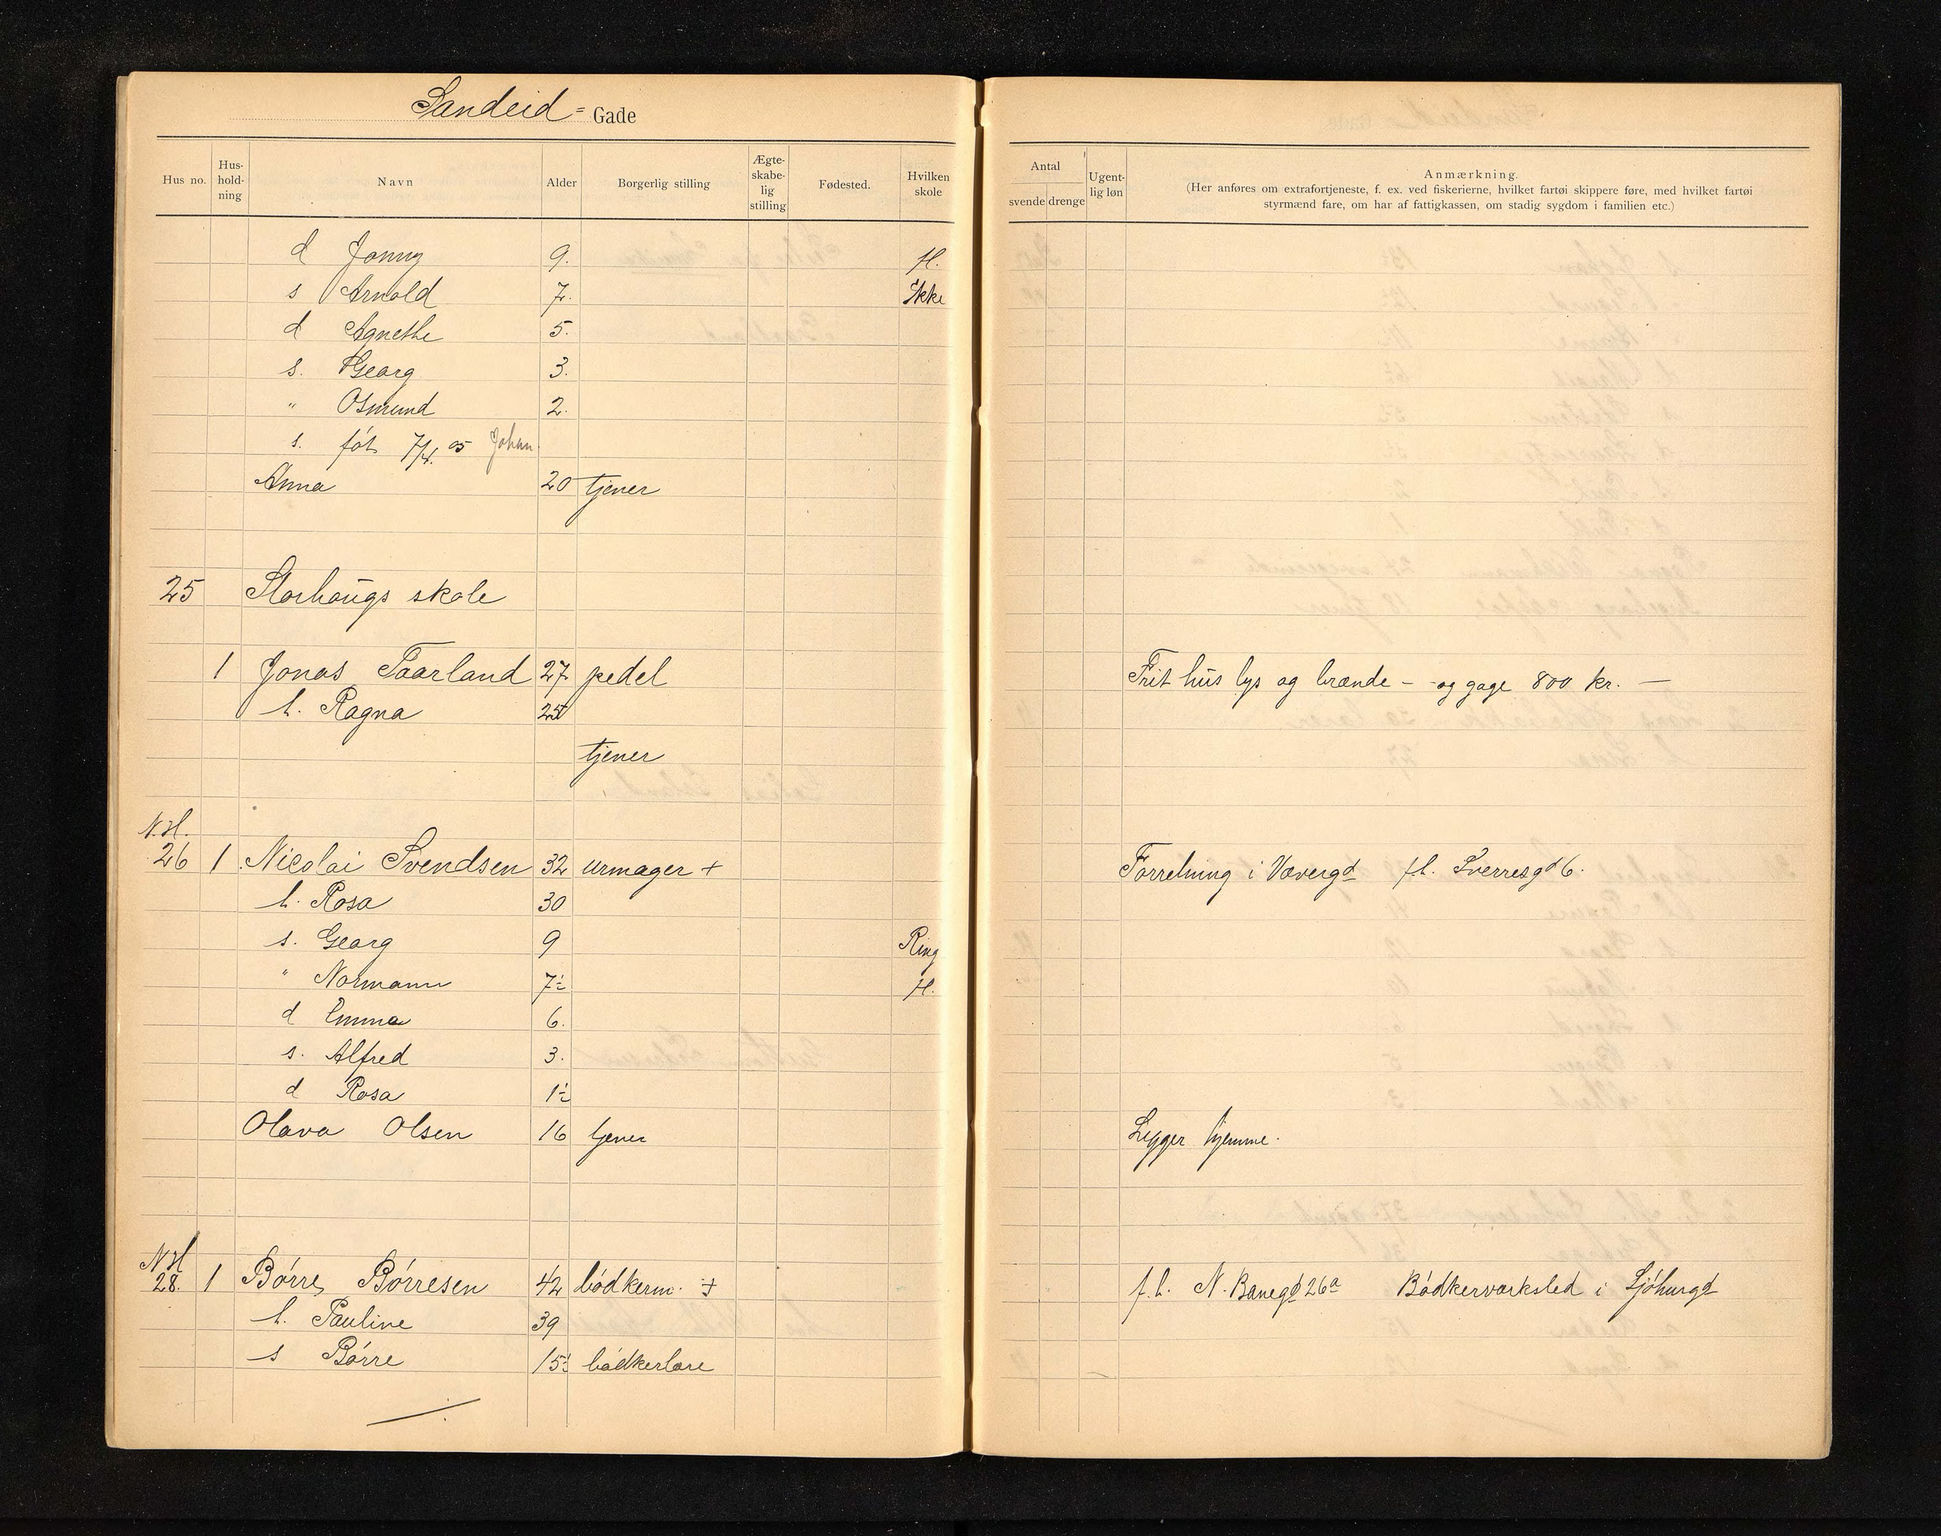 Sandeid= Gade
Hus no. Hus-hold-ning Navn Alder Borgerlig stilling Ægte-skabe-lig stilling Fødested. Hvilken skole Antal svende drenge Ugent-lig løn Anmærkning.
(Her anføres om extrafortjeneste, f. ex. ved fiskerierne, hvilket fartøi skippere føre, med hvilket fartøi
styrmænd fare, om har af fattigkassen, om stadig sygdom i familien etc.)
d Jonny 9. H.
s Arnold 7. Ikke
d Agnethe 5.
s. Georg 3.
" Osmund 2.
s. føt 7/4. 05 Johan.
Anna 20 tjener
25 Storhaugs skole
1 Jonas Taarland 27 pedel Frit hus lys og brænde – og gage 800 kr. —
h. Ragna 25
tjener
N.H.
26 1 Nicolai Svendsen 32 urmager + Forretning i Væverg^d fl. Sverresg^d 6.
h. Rosa 30
s. Georg 9 Ring
" Normann 7½ H.
d Emma 6.
s. Alfred 3.
d Rosa 1½
Olava Olsen 16 tjener Ligger hjemme.
N.H
28. 1 Børre Børresen 42 bødkerm. + f.l. N. Baneg^d 26^a Bødkerværksted i Sjøhusg^d
h. Pauline 39
s Børre 15½ bødkerlære